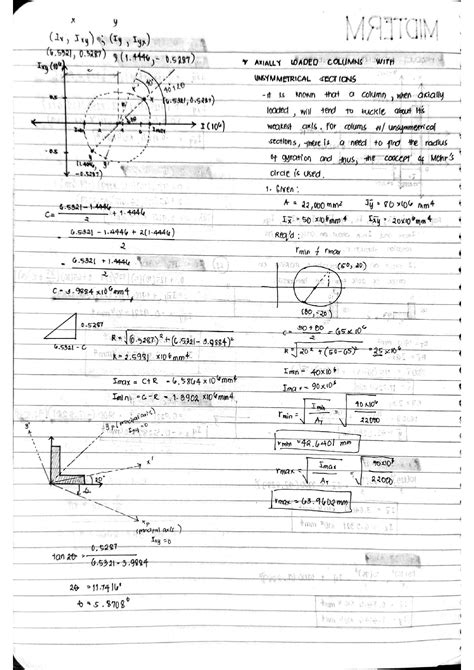 MIDTERM
x y
(Ix, Ixy) ; (Iy, Iyx)
(6.5321, 0.5287) & (1.4446, -0.5287)
Ixy (10⁶)
0.5
-0.5
I (10⁶)
(6.5321, 0.5287)
(1.4446, -0.5287)
C = 6.5321 - 1.4446 / 2 + 1.4446
= 6.5321 - 1.4446 + 2(1.4446) / 2
= 6.5321 + 1.4446 / 2
C = 3.9884 x10⁶ mm4
0.5287
6.5321 - C
R = √(0.5287)² + (6.5321 - 3.9884)²
R = 2.5981 x10⁶ mm4
Imax = C+R = 6.5864 x10⁶ mm4
Imin = C-R = 1.3902 x10⁶ mm4
yp (principal axis)
Ixy = 0
x'
20°
xp
(principal axis)
Ixy = 0
tan 2θ = 0.5287 / 6.5321 - 3.9884
2θ = 11.7416°
θ = 5.8708°
* AXIALLY LOADED COLUMNS WITH
UNSYMMETRICAL SECTIONS
- it is known that a column, when axially
loaded, will tend to buckle about its
weakest axis. for columns w/ unsymmetrical
sections, there is a need to find the radius
of gyration and thus, the concept of Mohr's
circle is used.
1. Given:
A = 22,000 mm² Iȳ = 80 x10⁶ mm4
Ix̄ = 50 x10⁶ mm4 Ix̄ȳ = 20x10⁶ mm4
Req'd:
rmin & rmax
(50, 20)
(80, -20)
C = 50 + 80 / 2 = 65 x 10⁶
R = √20² + (50-65)² = 25 x10⁶
Imin = 40x10⁶
Imax = 90x10⁶
rmin = √Imin / AT = √40 x10⁶ / 22000
rmin = 42.6401 mm
rmax = √Imax / AT = √90x10⁶ / 22000
rmax = 63.9602 mm